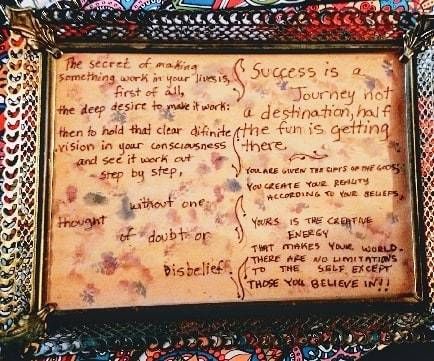 The secret of making
something work in your lives is,
first of all,
the deep desire to make it work:
then to hold that clear difinite
vision in your consciousness
and see it work out
step by step,
without one
thought
of doubt or
Disbelief.
Success is a
Journey not
a destination, half
the fun is getting
there.
YOU ARE GIVEN THE GIFTS OF THE GODS;
YOU CREATE YOUR REALITY
ACCORDING TO YOUR BELIEFS.
YOURS IS THE CREATIVE
ENERGY
THAT MAKES YOUR WORLD.
THERE ARE NO LIMITATIONS
TO THE SELF EXCEPT
THOSE YOU BELIEVE IN!!